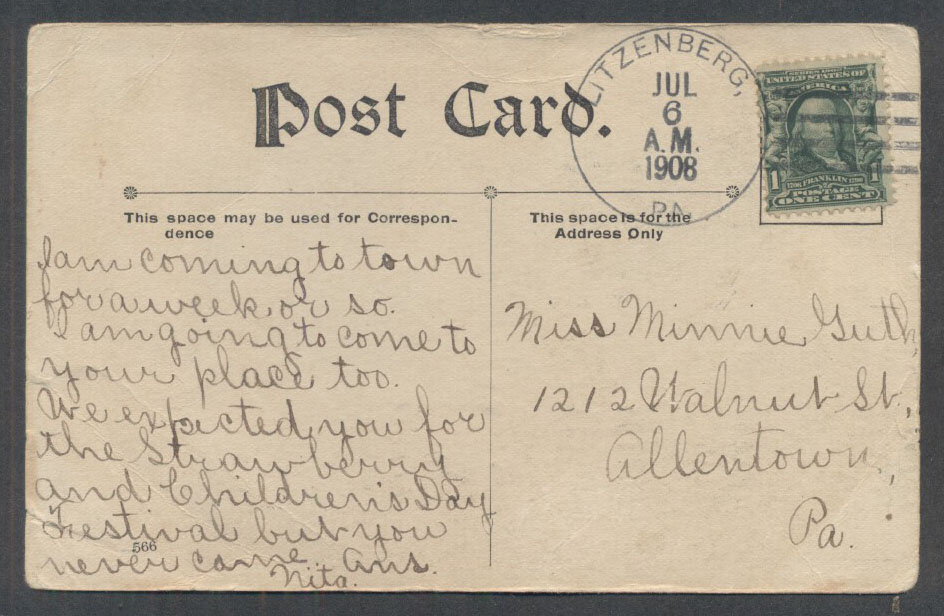 Post Card.
LITZENBERG,
JUL
6
A.M.
1908
PA.
SERIES 1902
UNITED STATES OF
AMERICA
1 1
1706 FRANKLIN 1790
POSTAGE
ONE CENT
This space may be used for Correspon-
dence
I am coming to town
for a week or so.
I am going to come to
your place too.
We expected you for
the Strawberry
and Children's Day
Festival but you
never came. Ans.
Nita.
566
This space is for the
Address Only
Miss Minnie Guth,
1212 Walnut St.,
Allentown,
Pa.